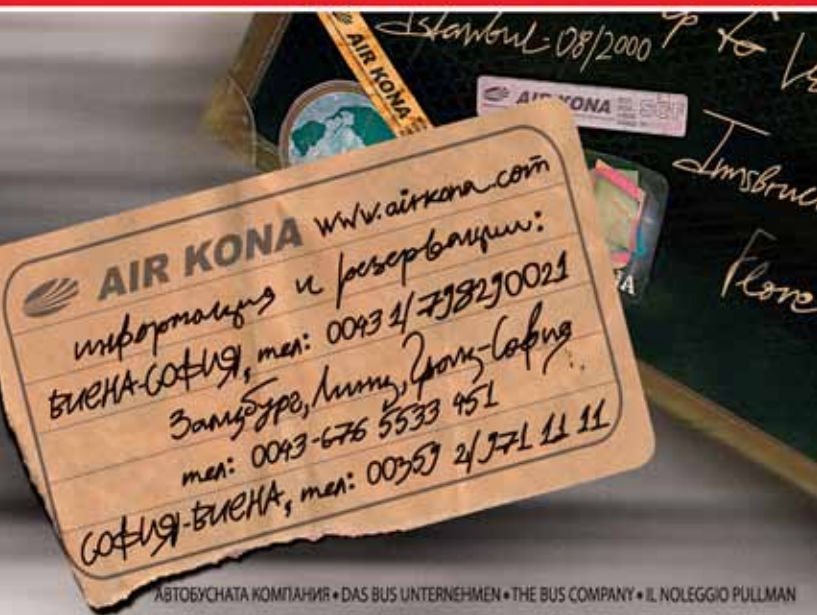 Istanbul-08/2000 up to
AIR KONA
AIR KONA
Innsbruc
Flore
AIR KONA www.airkona.com
информация и резервации:
ВИЕНА-СОФИЯ, тел: 0043 1/798290021
Залцбург, Линц, Грац-София
тел: 0043-676 5533 451
СОФИЯ-ВИЕНА, тел: 00359 2/971 11 11
АВТОБУСНАТА КОМПАНИЯ • DAS BUS UNTERNEHMEN • THE BUS COMPANY • IL NOLEGGIO PULLMAN